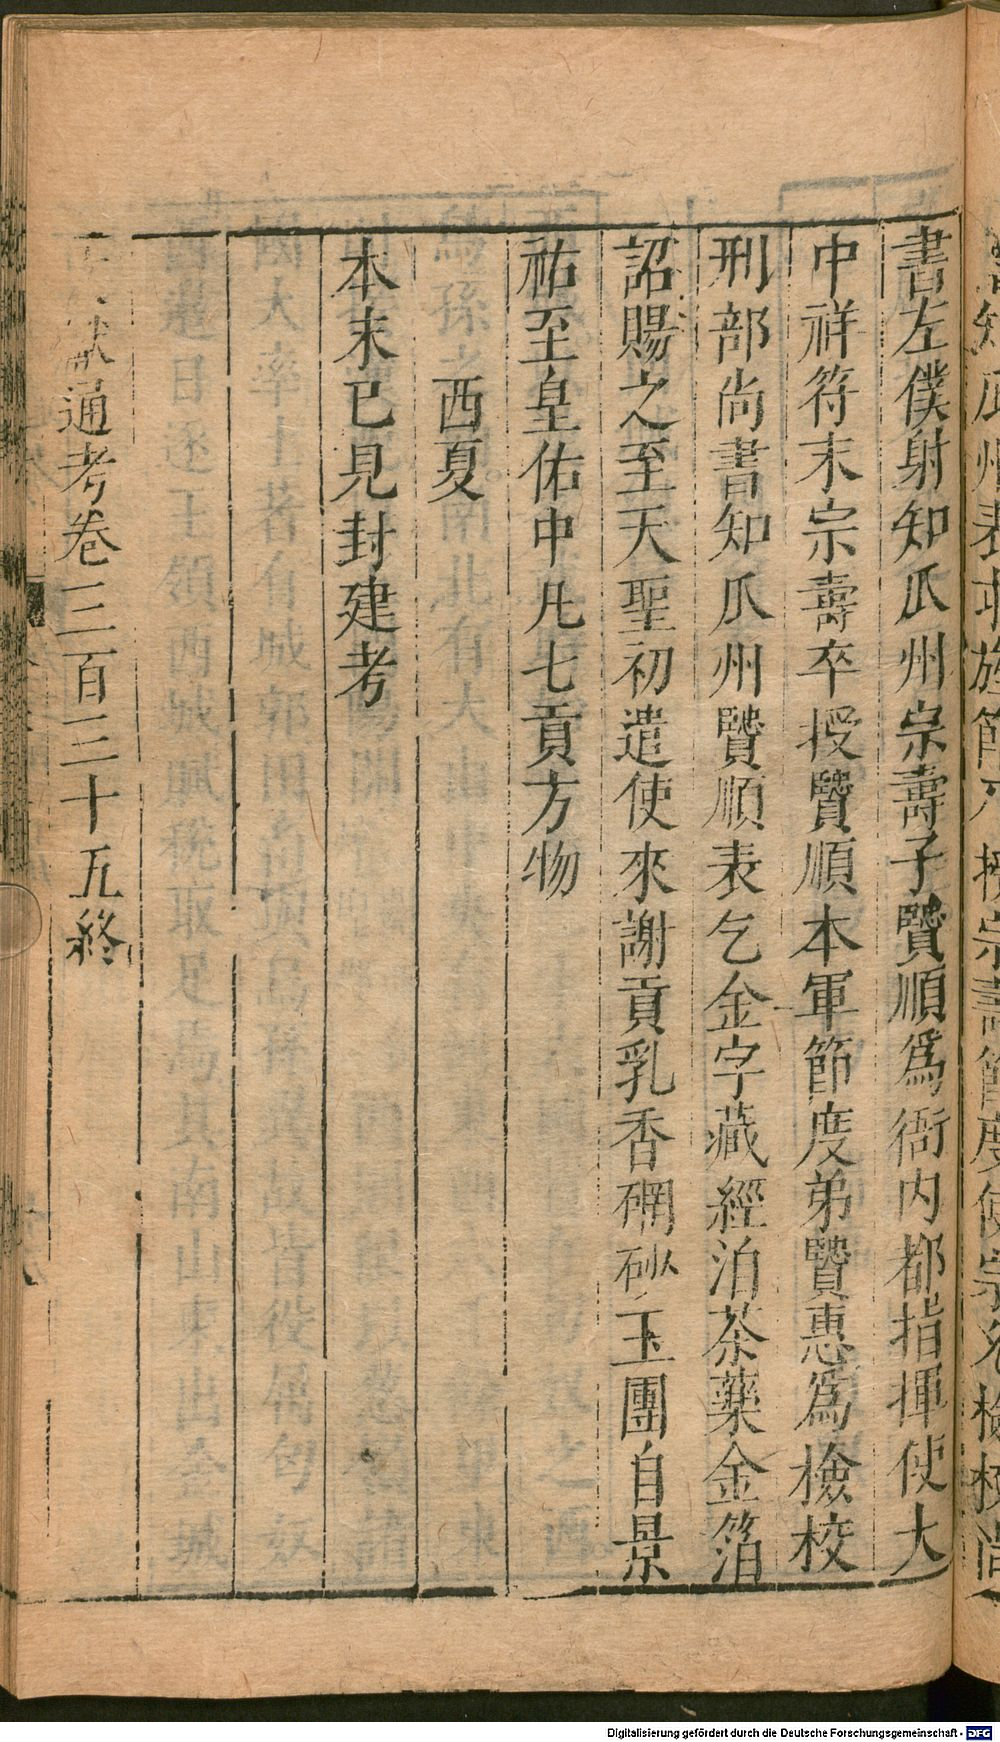 書左僕射知瓜州宗壽子賢順爲衙内都指揮使大
中祥符末宗壽卒授賢順本軍節度弟賢惠爲檢校
刑部尚書知瓜州賢順表乞金字藏經洎茶藥金箔
詔賜之至天聖初遣使來謝貢乳香硇砂玉團自景
祐至皇佑中凡七貢方物
西夏
本末已見封建考
通考卷三百三十五終
Digitalisierung gefördert durch die Deutsche Forschungsgemeinschaft - DFG